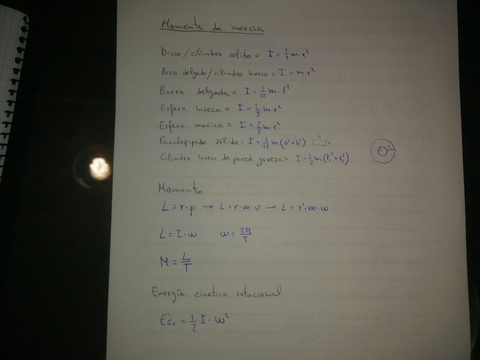 Momento de inercia
Disco/cilindro sólido = I = 1/2 m·r²
Arco delgado/cilindro hueco = I = m·r²
Barra delgada = I = 1/12 m·l²
Esfera hueca = I = 2/3 m·r²
Esfera maciza = I = 2/5 m·r²
Paralepípedo sólido = I = 1/12 m(a²+b²)
Cilindro hueco de pared gruesa = I = 1/2 m(
Momento
L = r·p → L = r·m·v → L = r²·m·w
L = I·w w =
M = L/T
Energía cinética rotacional
Ecr = 1/2 I·w²